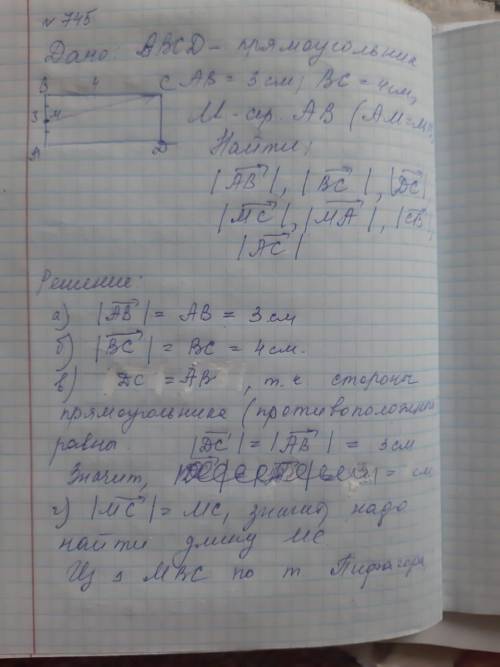 № 745
Дано: ABCD – прямоугольник
AB = 3 см, BC = 4 см,
B 4 C
3 M
A D
M – сер. AB (AM =
Найти:
|AB|, |BC|, |DC|
|MC|, |MA|, |CB|,
|AC|
Решение:
а) |AB| = AB = 3 см
б) |BC| = BC = 4 см.
в) DC = AB, т.к стороны
прямоугольника (противоположные
равны |DC| = |AB| = 3 см
Значит, = см
г) |MC| = MC, значит, надо
найти длину MC
Из MBC по т Пифагора